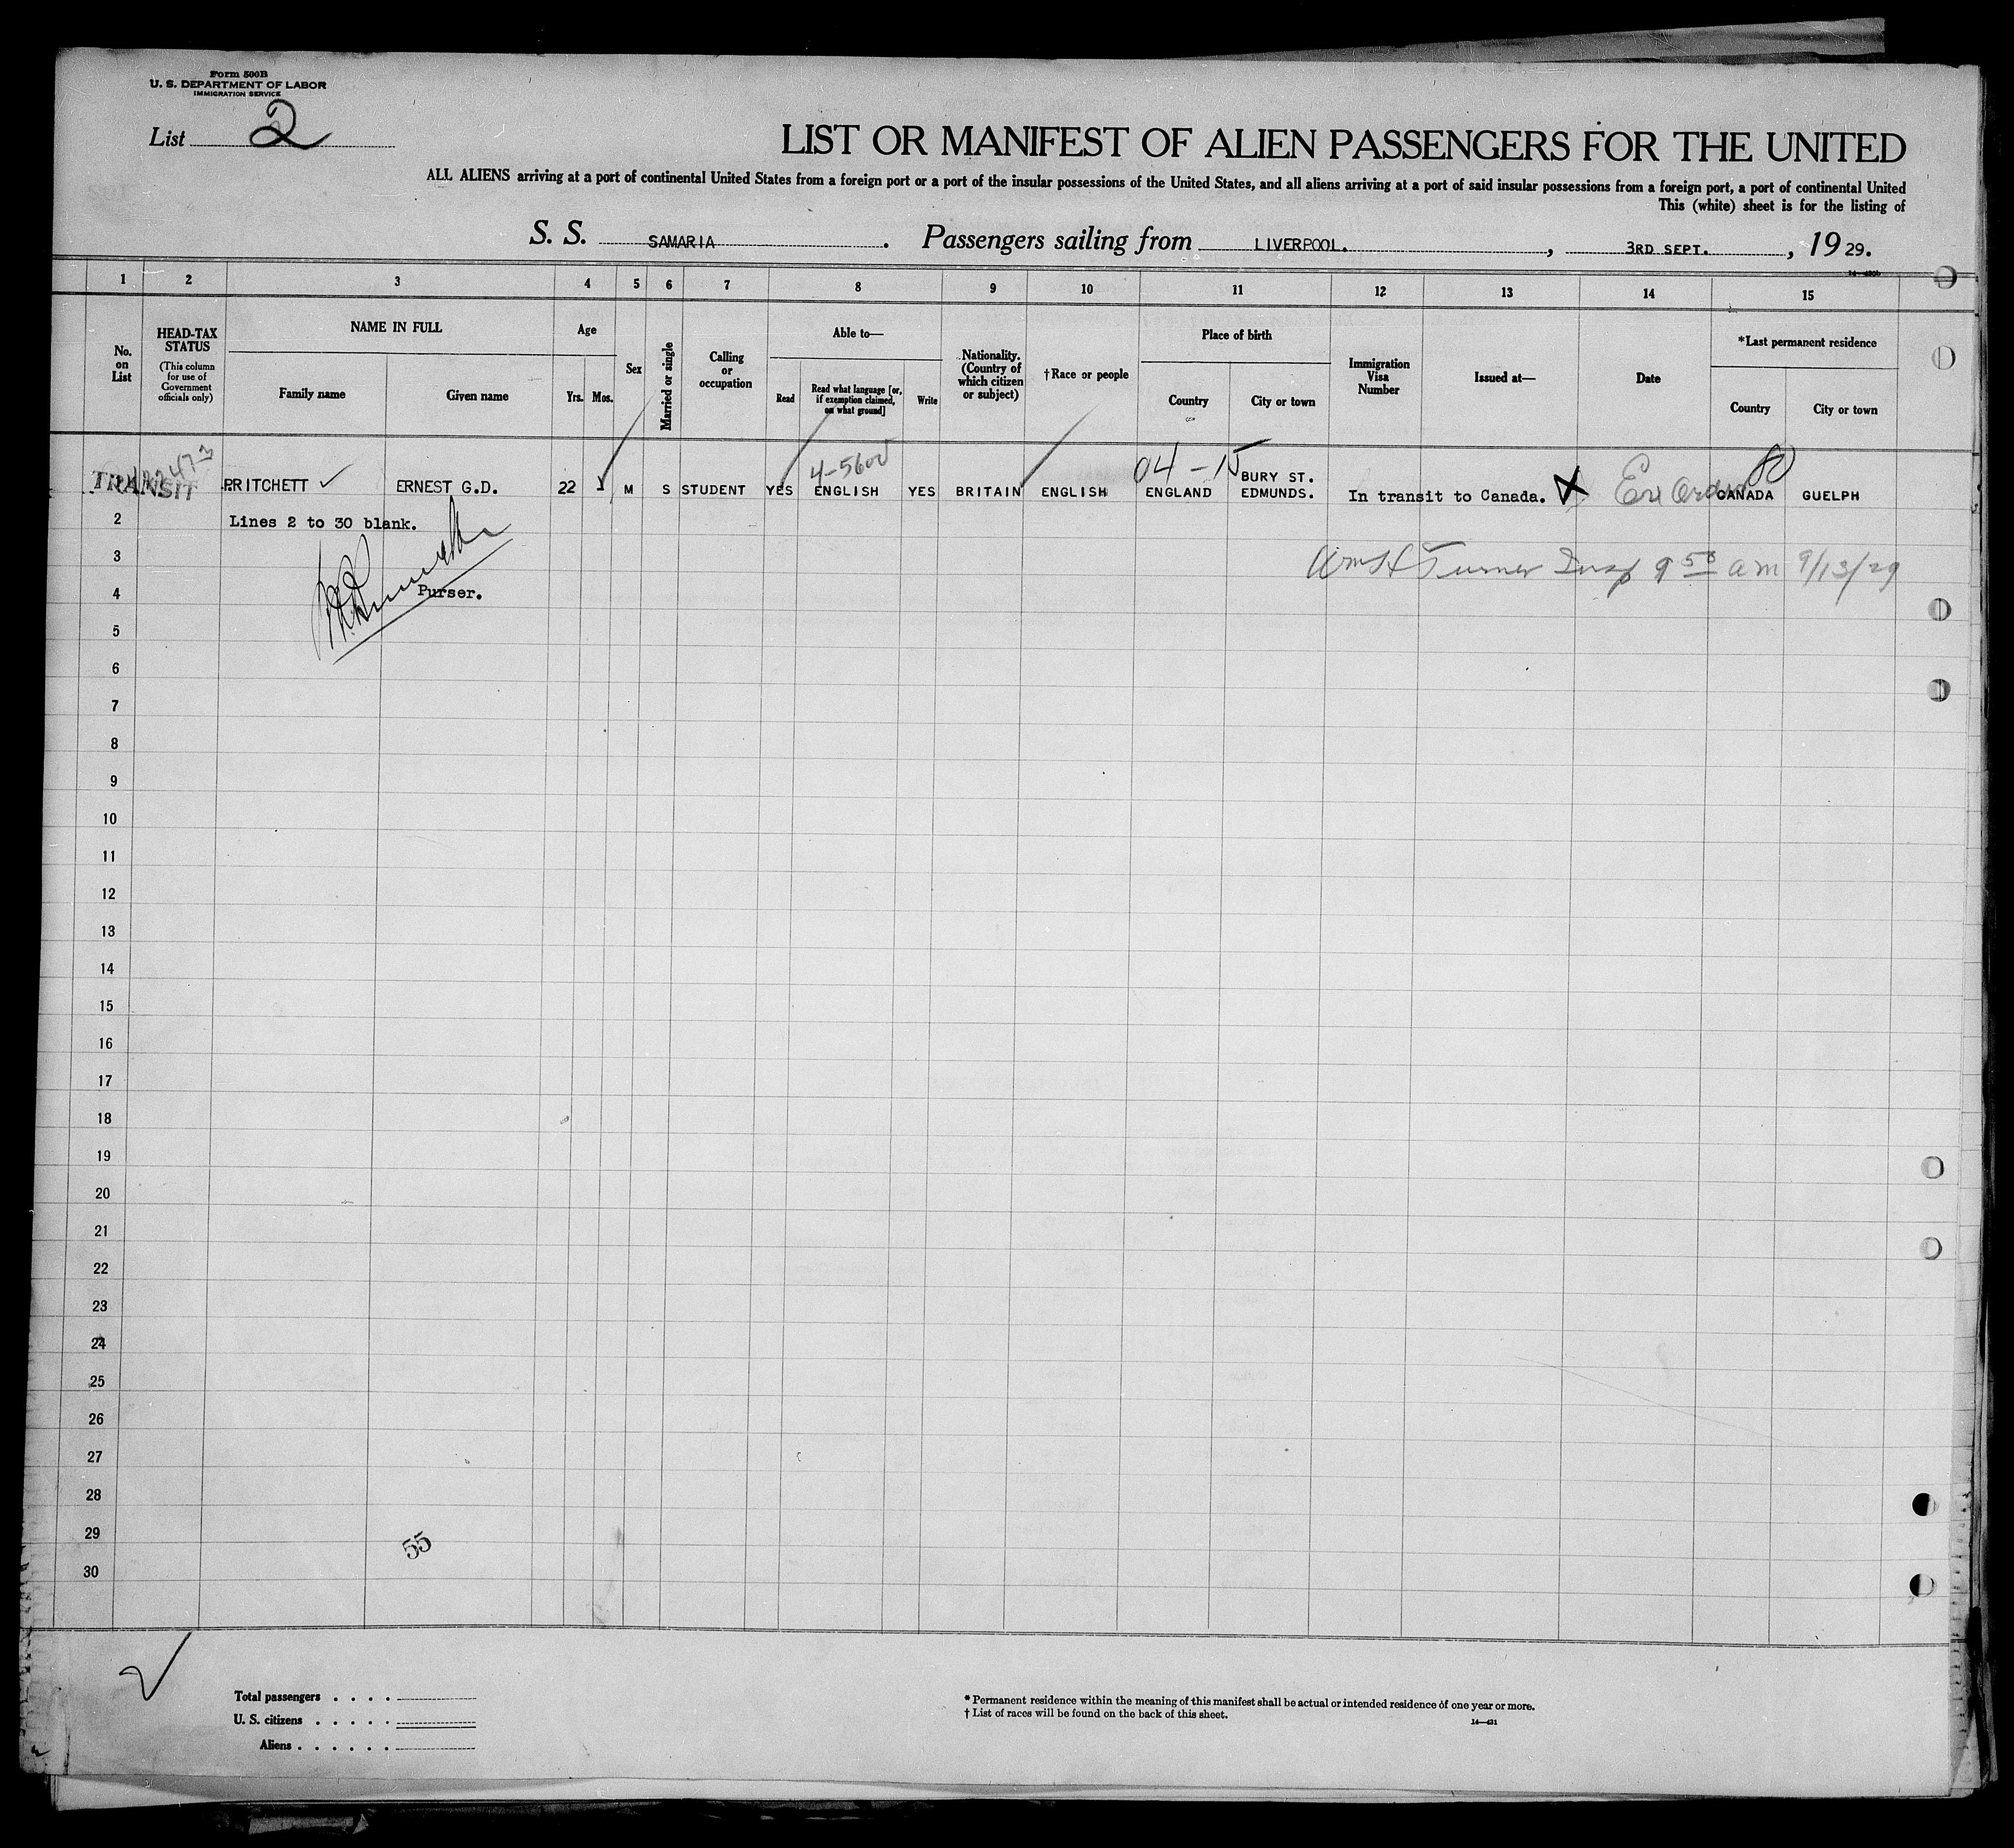 Form 500B
U. S. DEPARTMENT OF LABOR
IMMIGRATION SERVICE
List 2
LIST OR MANIFEST OF ALIEN PASSENGERS FOR THE UNITED
ALL ALIENS arriving at a port of continental United States from a foreign port or a port of the insular possessions of the United States, and all aliens arriving at a port of said insular possessions from a foreign port, a port of continental United
This (white) sheet is for the listing of
S. S. SAMARIA. Passengers sailing from LIVERPOOL., 3RD SEPT., 1929.
1 2 3 4 5 6 7 8 9 10 11 12 13 14 15
No. on List
HEAD-TAX STATUS
(This column for use of Government officials only)
NAME IN FULL
Family name
Given name
Age
Yrs. Mos.
Sex
Married or single
Calling or occupation
Able to—
Read
Read what language [or, if exemption claimed, on what ground]
Write
Nationality. (Country of which citizen or subject)
†Race or people
Place of birth
Country
City or town
Immigration Visa Number
Issued at—
Date
*Last permanent residence
Country
City or town
4-5600
04-15
TRANSIT PRITCHETT ERNEST G.D. 22 1 M S STUDENT YES ENGLISH YES BRITAIN ENGLISH ENGLAND BURY ST. EDMUNDS. In transit to Canada. X CANADA GUELPH
2 Lines 2 to 30 blank.
3 Wm H Turner Insp 9 58 am 9/13/29
4 Purser.
5
6
7
8
9
10
11
12
13
14
15
16
17
18
19
20
21
22
23
24
25
26
27
28
29
55
30
Total passengers . . . .
U. S. citizens . . . . .
Aliens . . . . . .
* Permanent residence within the meaning of this manifest shall be actual or intended residence of one year or more.
† List of races will be found on the back of this sheet.
14—431